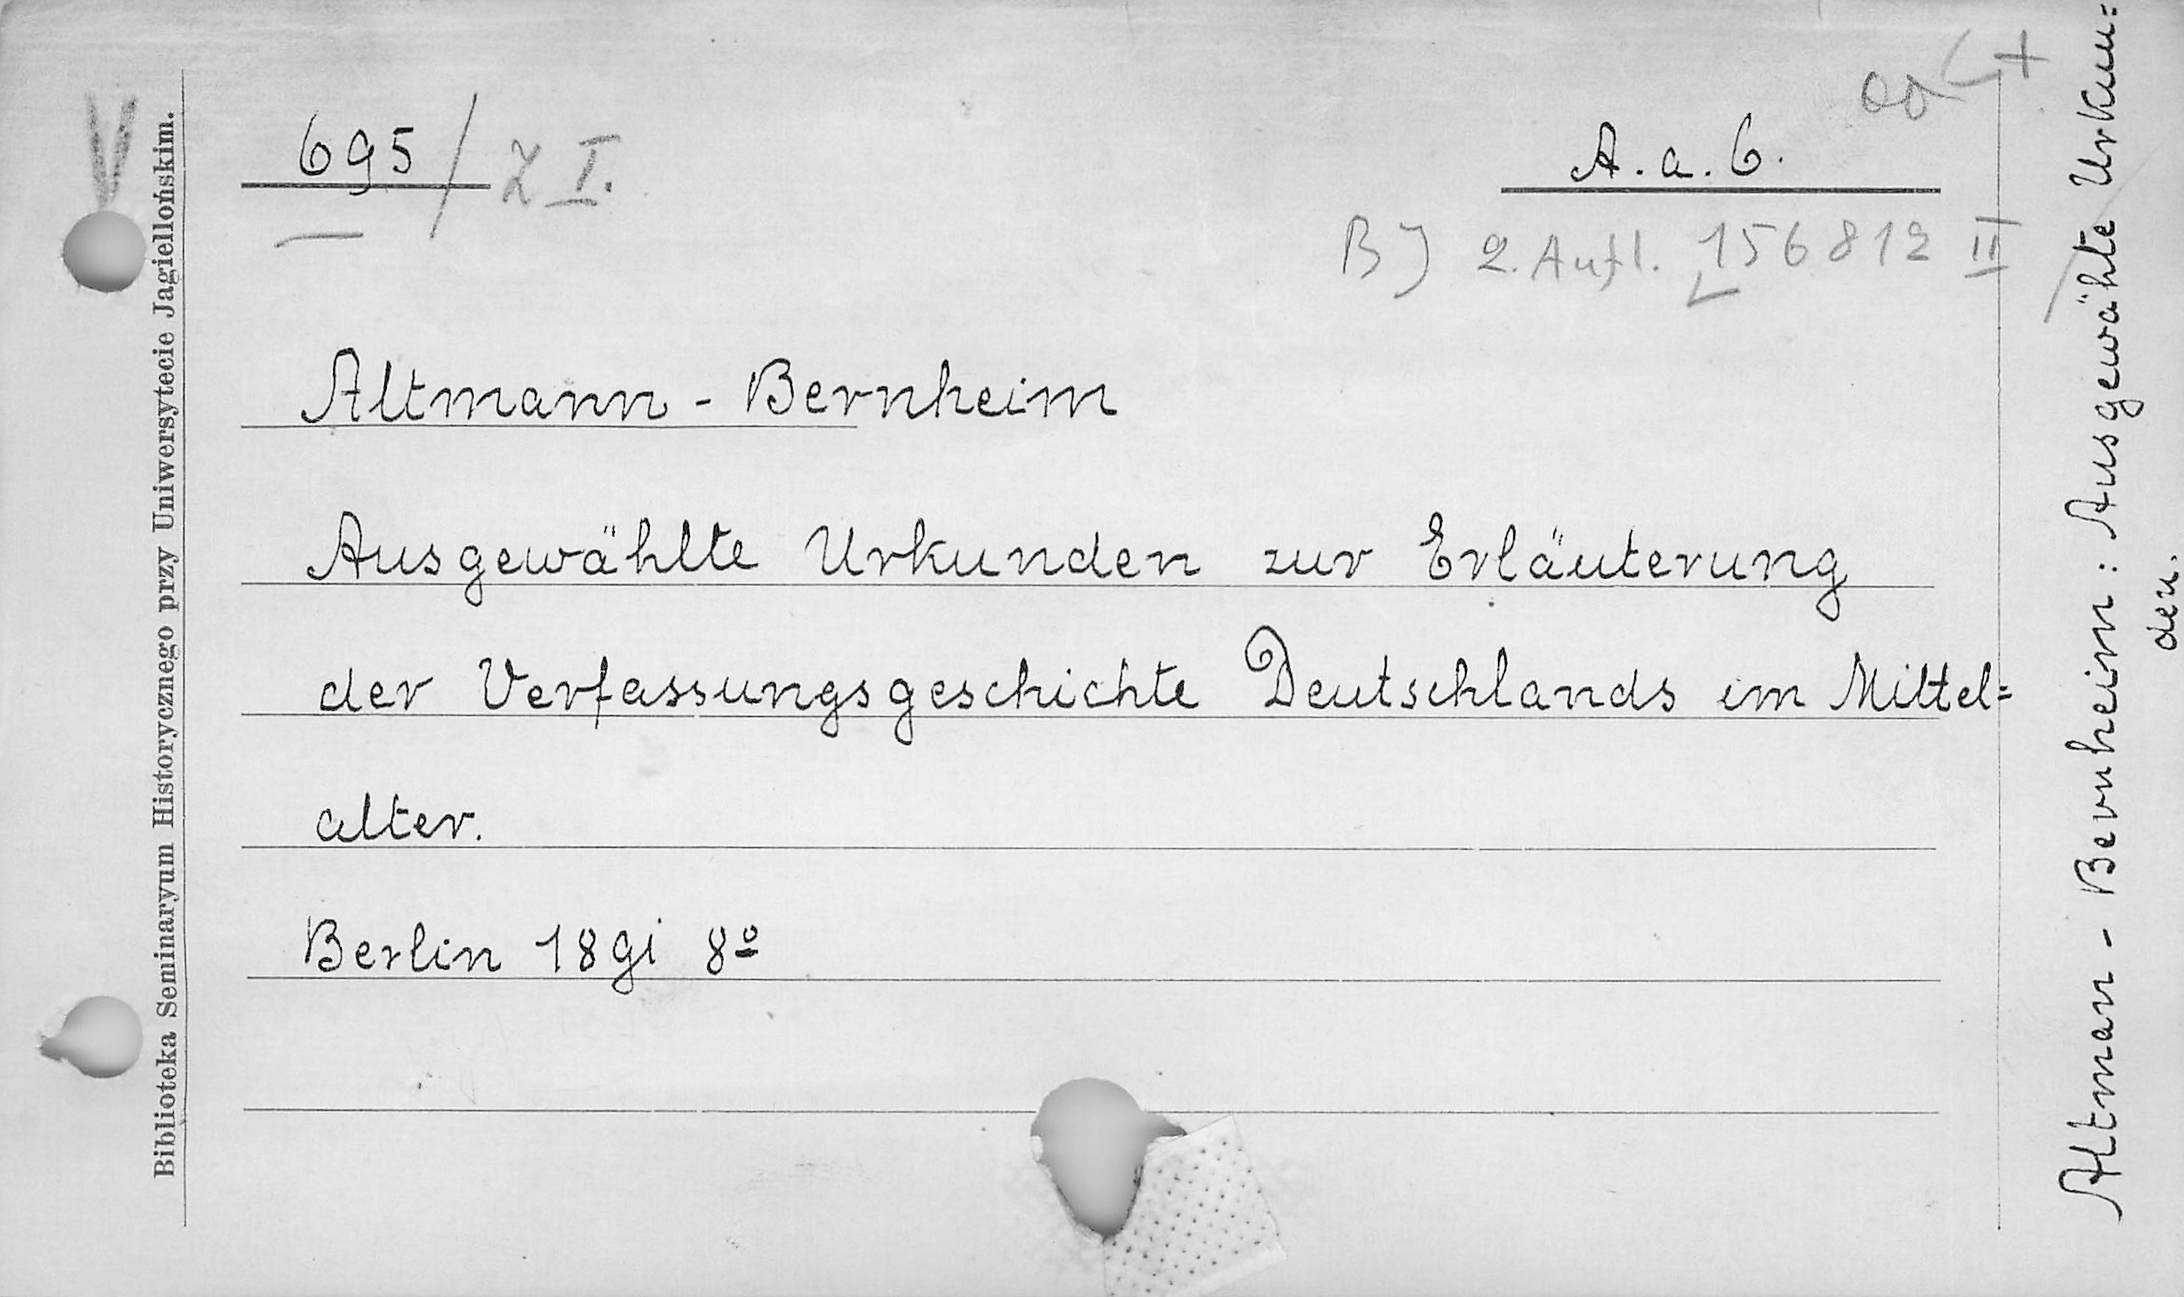 695 / X I.
A. a. 6.
BJ 2. Aufl. 156812 II
Altmann - Bernheim
Ausgewählte Urkunden zur Erläuterung
der Verfassungsgeschichte Deutschlands im Mittel=
alter.
Berlin 1891 8º
Biblioteka Seminaryum Historycznego przy Uniwersytecie Jagiellońskim.
Altman - Bernheim: Ausgewählte Urkun=
den.